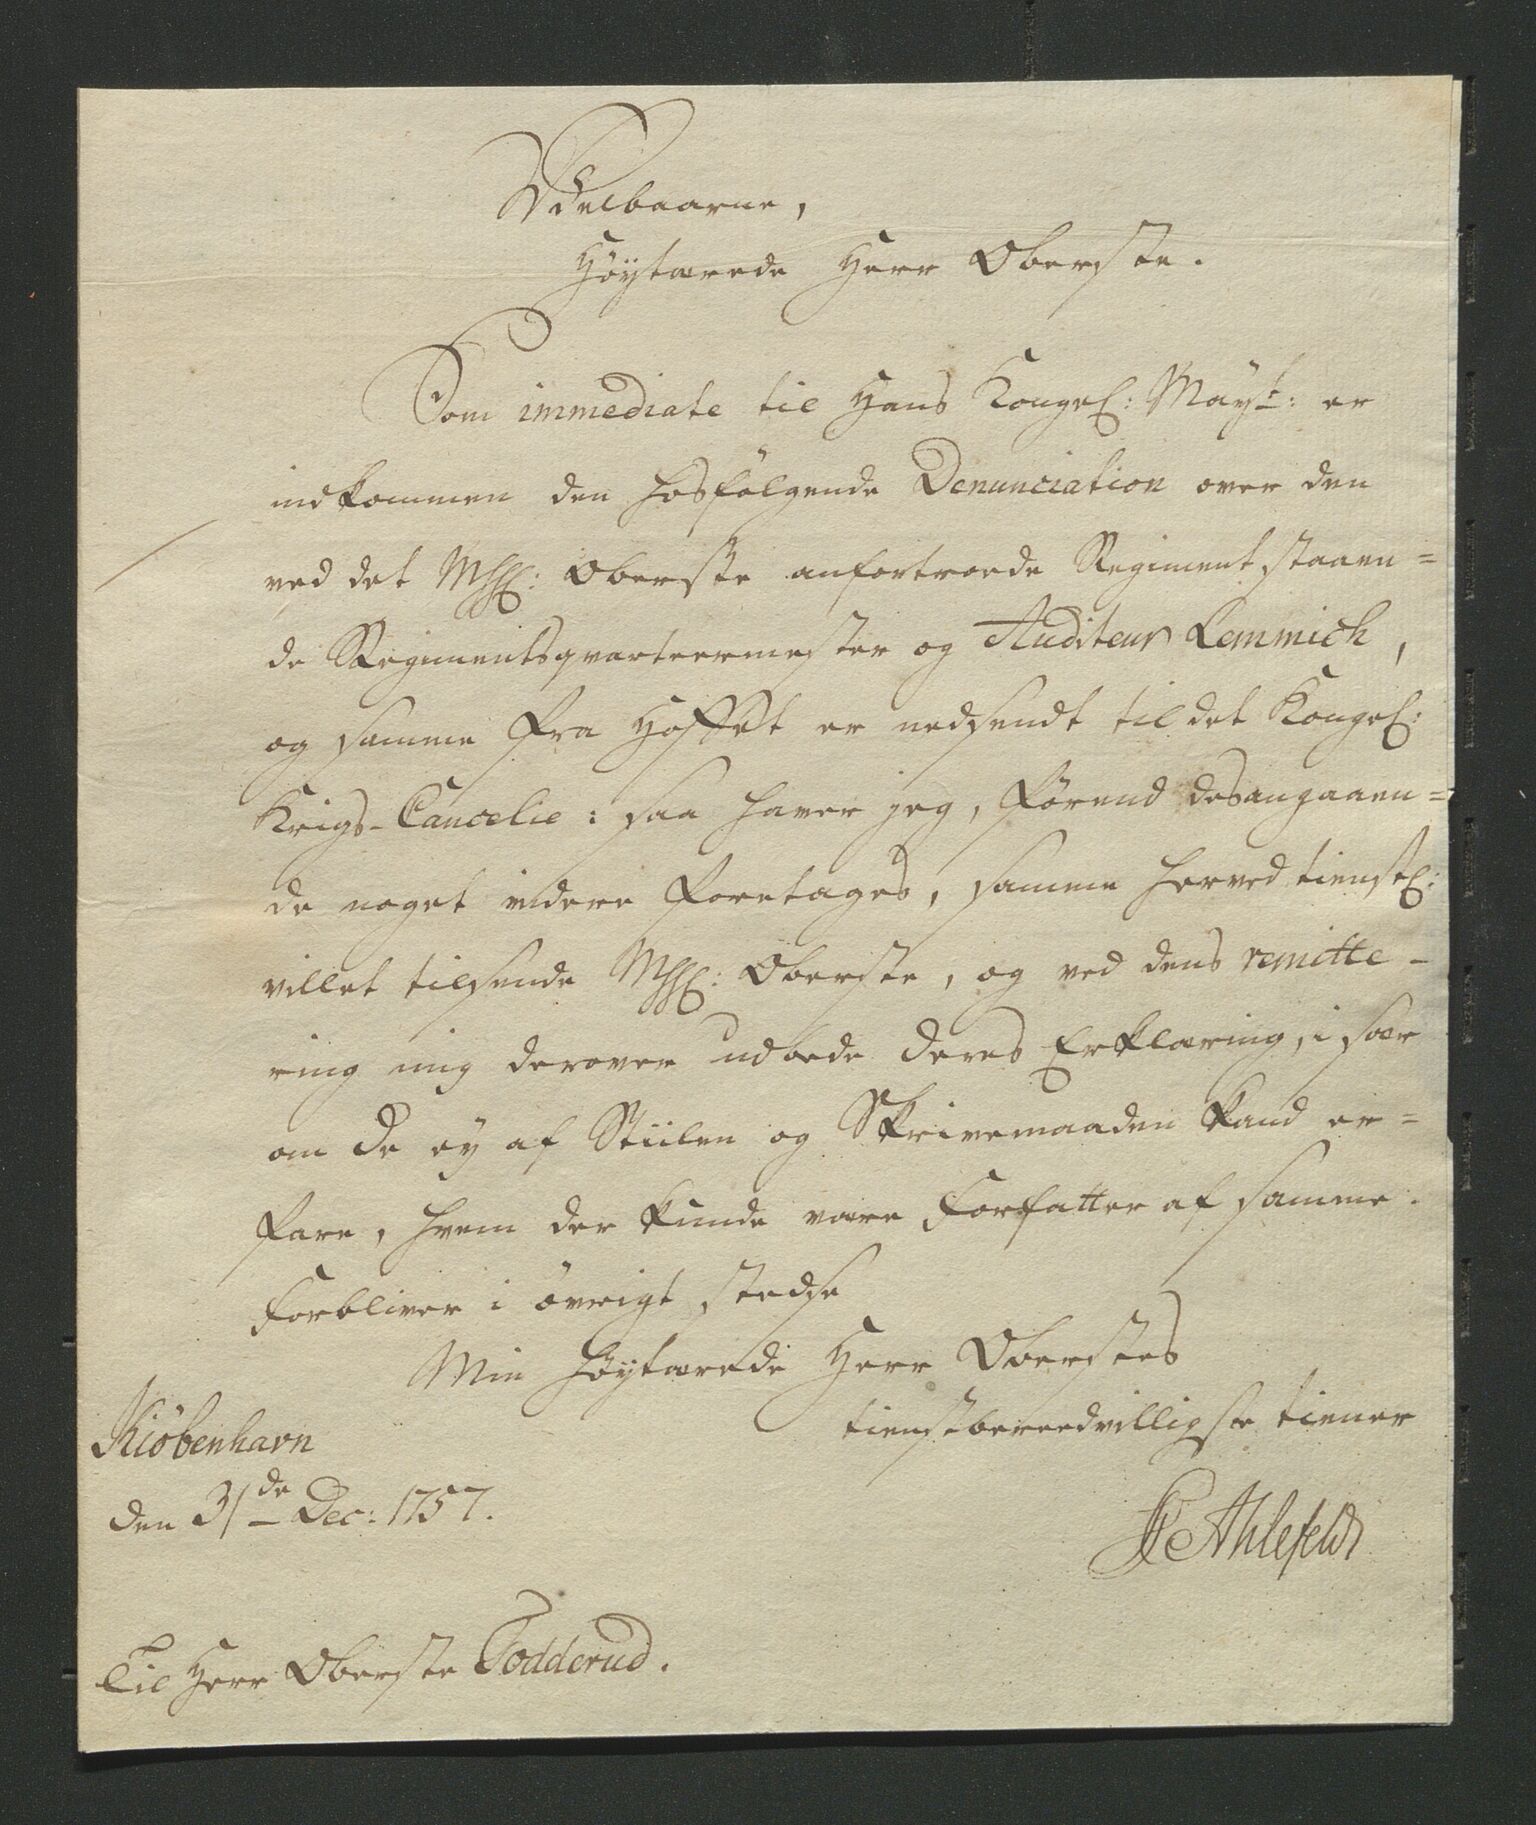 Vdelbaarne,
Höÿtærede Herr Oberste.
Som immediate til Hans Kongel: Maÿt: er
indkommen den hosfölgende Denunciation over den
ved det Hßl: Oberste anfortroede Regiment staaen=
de Regimentsqvarteermester og Auditeur Lemmich,
og samme fra Hoffet er nedsendt til det Kongel:
Krigs-Cancelie: saa haver jeg, förend desangaaen=
de noget videre foretages, samme herved tienstl:
villet tilsende Hßl: Oberste, og ved dens remitte-
ring mig derover udbede deres Erklæring, i sær
om de eÿ af Stiilen og Skrivemaaden kand er=
fare, hvem der kunde være Forfatter af samme.
Forbliver i övrigt stedse
Min höÿtærede Herr Oberstes
tienstbereedvilligste tiener
Kiöbenhavn
den 31de Dec: 1757.
Ahlefeldt
Til Herr Oberste Todderud.